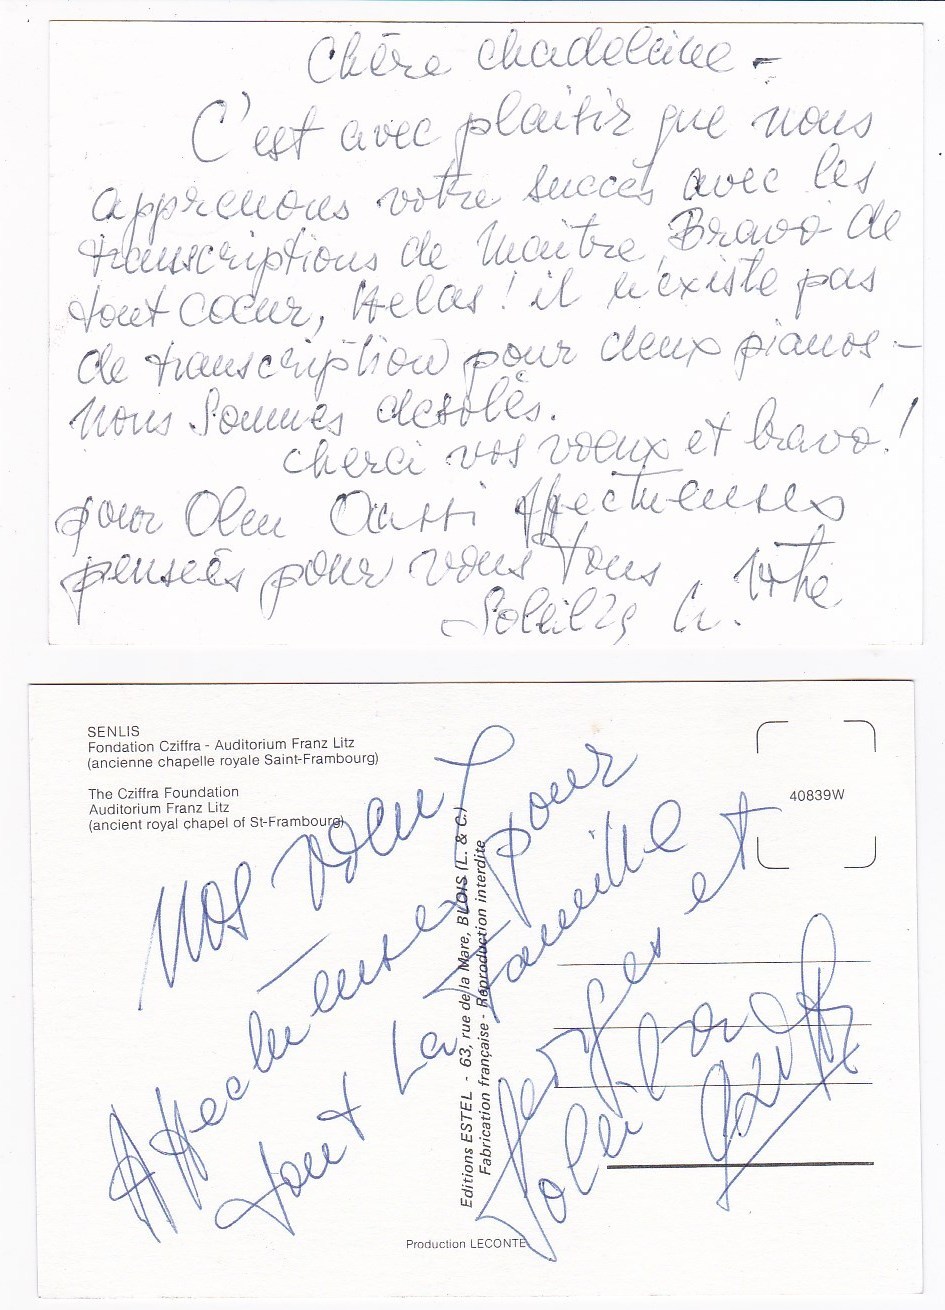 Chère Madeleine -
C'est avec plaisir que nous
apprenons votre succés avec les
transcriptions de Maitre, Bravo de
tout coeur, Helas! il n'existe pas
de transcription pour deux pianos -
Nous Sommes desolés.
Merci vos voeux et bravo!
pour Aussi Affectueuses
pensées pour vous tous Votre
Soleilka
SENLIS
Fondation Cziffra - Auditorium Franz Litz
(ancienne chapelle royale Saint-Frambourg)
The Cziffra Foundation
Auditorium Franz Litz
(ancient royal chapel of St-Frambourg)
40839W
Nos voeux
Affectueuses pour
tout La Famille
et
Cziffra
Editions ESTEL - 63, rue de la Mare, BLOIS (L. & C.)
Fabrication française - Reproduction interdite
Production LECONTE